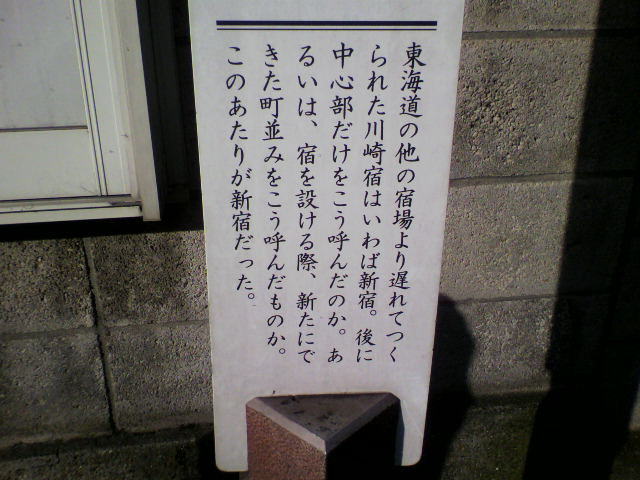 東海道の他の宿場より遅れてつく
られた川崎宿はいわば新宿。後に
中心部だけをこう呼んだのか。あ
るいは、宿を設ける際、新たにで
きた町並みをこう呼んだものか。
このあたりが新宿だった。